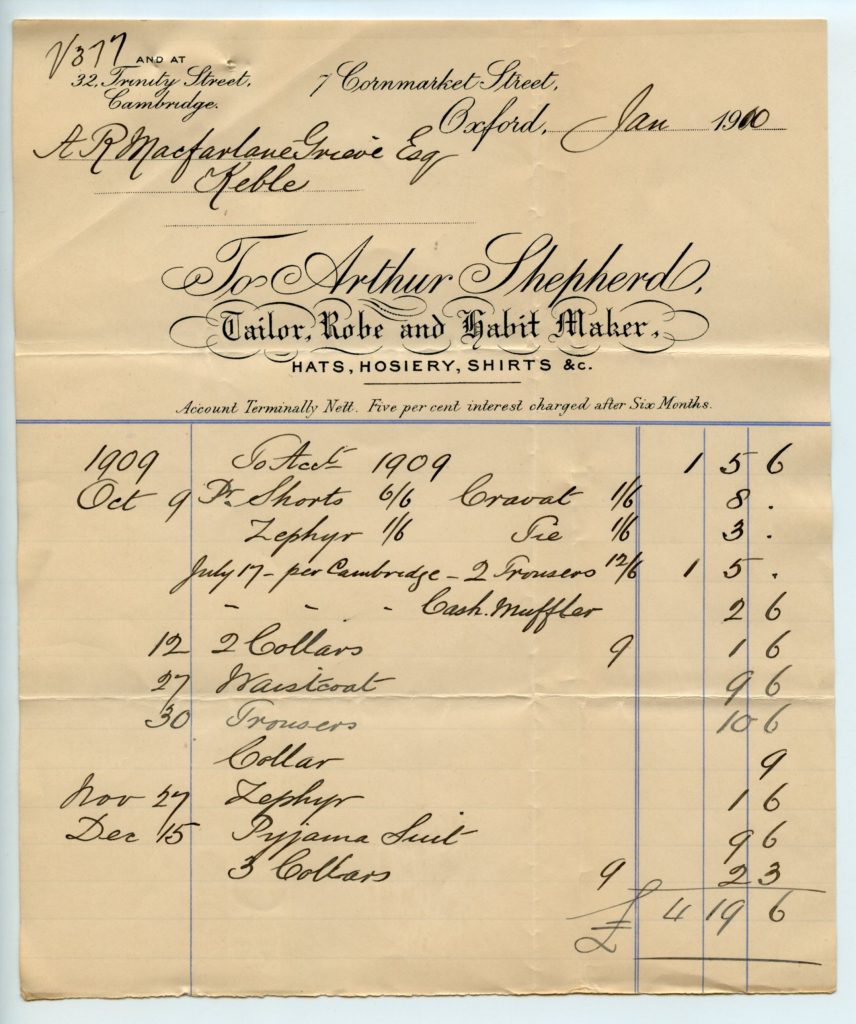 V377
AND AT
32, Trinity Street,
Cambridge.
7 Cornmarket Street,
Oxford, Jan 1910
A R Macfarlane Grieve Esq
Keble
To Arthur Shepherd,
Tailor, Robe and Habit Maker,
HATS, HOSIERY, SHIRTS &c.
Account Terminally Nett. Five per cent interest charged after Six Months.
1909 To Acct 1909 1 5 6
Oct 9 Pr Shorts 6/6 Cravat 1/6 8 .
Zephyr 1/6 Tie 1/6 3 .
July 17 - per Cambridge - 2 Trousers 12/6 1 5 .
- - - Cash. Muffler 2 6
12 2 Collars 9 1 6
27 Waistcoat 9 6
30 Trousers 10 6
Collar 9
Nov 27 Zephyr 1 6
Dec 15 Pyjama Suit 9 6
3 Collars 9 2 3
£ 4 19 6